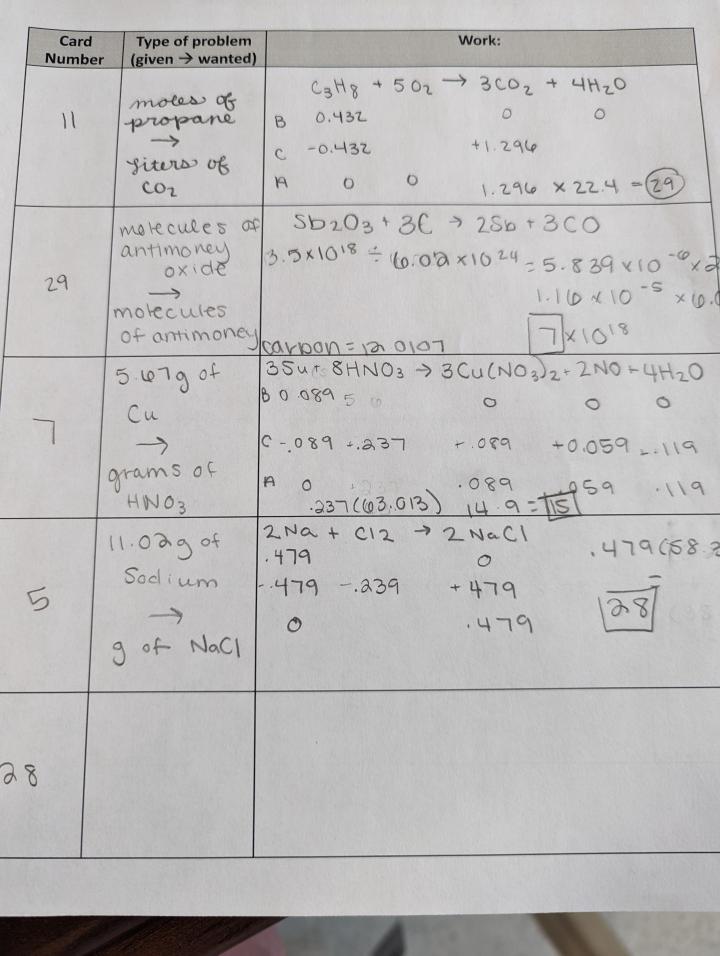 Card Number
Type of problem (given → wanted)
Work:
11
moles of propane → liters of CO2
C3H8 + 5O2 → 3CO2 + 4H2O
B 0.432 0 0
C -0.432 +1.296
A 0 0 1.296 × 22.4 = 29
29
molecules of antimoney oxide → molecules of antimoney
Sb2O3 + 3C → 2Sb + 3CO
3.5×10^18 ÷ 6.02×10^24 = 5.839×10^-6 ×2
1.16×10^-5 ×6.0
7×10^18
carbon = 12.0107
7
5.67g of Cu → grams of HNO3
8HNO3 → 3Cu(NO3)2 + 2NO + 4H2O
B 0.089 0 0 0
C -.089 -.237 +.089 +0.059 .119
A 0 .089 .059 .119
.237(63.013) 14.9 = 15
5
11.02g of Sodium → g of NaCl
2Na + Cl2 → 2NaCl
.479 0
-.479 -.239 +479
0 .479
.479(58.
=
28
28